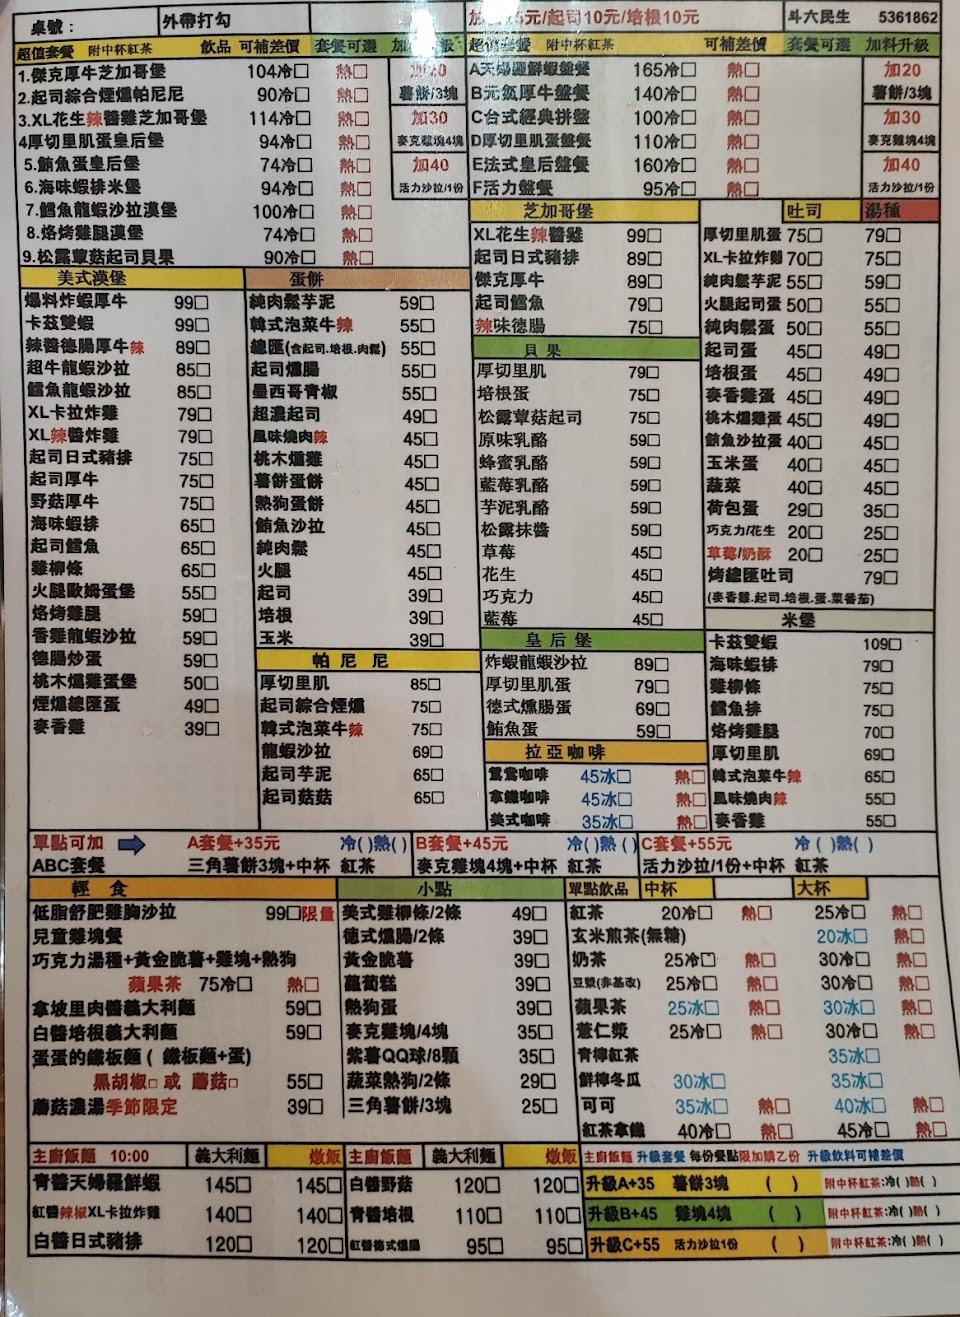 桌號： 外帶打勾 5元/起司10元/培根10元 斗六民生 5361862
超值套餐 附中杯紅茶 飲品 可補差價 套餐可選 加料升級
1.傑克厚牛芝加哥堡 104冷□ 熱□ 加20
2.起司綜合煙燻帕尼尼 90冷□ 熱□ 薯餅/3塊
3.XL花生辣醬雞芝加哥堡 114冷□ 熱□ 加30
4厚切里肌蛋皇后堡 94冷□ 熱□ 麥克雞塊4塊
5.鮪魚蛋皇后堡 74冷□ 熱□ 加40
6.海味蝦排米堡 94冷□ 熱□ 活力沙拉/1份
7.鱈魚龍蝦沙拉漢堡 100冷□ 熱□
8.烙烤雞腿漢堡 74冷□ 熱□
9.松露蕈菇起司貝果 90冷□ 熱□
超值套餐 附中杯紅茶 可補差價 套餐可選 加料升級
A天婦羅鮮蝦盤餐 165冷□ 熱□ 加20
B元氣厚牛盤餐 140冷□ 熱□ 薯餅/3塊
C台式經典拼盤 100冷□ 熱□ 加30
D厚切里肌蛋盤餐 110冷□ 熱□ 麥克雞塊4塊
E法式皇后盤餐 160冷□ 熱□ 加40
F活力盤餐 95冷□ 熱□ 活力沙拉/1份
美式漢堡
爆料炸蝦厚牛 99□
卡茲雙蝦 99□
辣醬德腸厚牛辣 89□
超牛龍蝦沙拉 85□
鱈魚龍蝦沙拉 85□
XL卡拉炸雞 79□
XL辣醬炸雞 79□
起司日式豬排 75□
起司厚牛 75□
野菇厚牛 75□
海味蝦排 65□
起司鱈魚 65□
雞柳條 65□
火腿歐姆蛋堡 55□
烙烤雞腿 59□
香雞龍蝦沙拉 59□
德腸炒蛋 59□
桃木燻雞蛋堡 50□
煙燻總匯蛋 49□
麥香雞 39□
蛋餅
純肉鬆芋泥 59□
韓式泡菜牛辣 55□
總匯(含起司.培根.肉鬆) 55□
起司燻腸 55□
墨西哥青椒 55□
超濃起司 49□
風味燒肉辣 45□
桃木燻雞 45□
薯餅蛋餅 45□
熱狗蛋餅 45□
鮪魚沙拉 45□
純肉鬆 45□
火腿 45□
起司 39□
培根 39□
玉米 39□
帕尼尼
厚切里肌 85□
起司綜合煙燻 75□
韓式泡菜牛辣 75□
龍蝦沙拉 69□
起司芋泥 65□
起司菇菇 65□
芝加哥堡
XL花生辣醬雞 99□
起司日式豬排 89□
傑克厚牛 89□
起司鱈魚 79□
辣味德腸 75□
貝果
厚切里肌 79□
培根蛋 75□
松露蕈菇起司 75□
原味乳酪 59□
蜂蜜乳酪 59□
藍莓乳酪 59□
芋泥乳酪 59□
松露抹醬 59□
草莓 45□
花生 45□
巧克力 45□
藍莓 45□
皇后堡
炸蝦龍蝦沙拉 89□
厚切里肌蛋 79□
德式燻腸蛋 69□
鮪魚蛋 59□
拉亞咖啡
鴛鴦咖啡 45冰□ 熱□
拿鐵咖啡 45冰□ 熱□
美式咖啡 35冰□ 熱□
吐司 湯種
厚切里肌蛋 75□ 79□
XL卡拉炸雞 70□ 75□
純肉鬆芋泥 55□ 59□
火腿起司蛋 50□ 55□
純肉鬆蛋 50□ 55□
起司蛋 45□ 49□
培根蛋 45□ 49□
麥香雞蛋 45□ 49□
桃木燻雞蛋 45□ 49□
鮪魚沙拉蛋 40□ 45□
玉米蛋 40□ 45□
蔬菜 40□ 45□
荷包蛋 29□ 35□
巧克力/花生 20□ 25□
草莓/奶酥 20□ 25□
烤總匯吐司 79□
(麥香雞.起司.培根.蛋.菜番茄)
米堡
卡茲雙蝦 109□
海味蝦排 79□
雞柳條 75□
鱈魚排 75□
烙烤雞腿 70□
厚切里肌 69□
韓式泡菜牛辣 65□
風味燒肉辣 55□
麥香雞 55□
單點可加 A套餐+35元 冷( )熱( ) B套餐+45元 冷( )熱( ) C套餐+55元 冷( )熱( )
ABC套餐 三角薯餅3塊+中杯 紅茶 麥克雞塊4塊+中杯 紅茶 活力沙拉/1份+中杯 紅茶
輕食
低脂舒肥雞胸沙拉 99□限量
兒童雞塊餐
巧克力湯種+黃金脆薯+雞塊+熱狗
蘋果茶 75冷□ 熱□
拿坡里肉醬義大利麵 59□
白醬培根義大利麵 59□
蛋蛋的鐵板麵 ( 鐵板麵+蛋)
黑胡椒□ 或 蘑菇□ 55□
蘑菇濃湯季節限定 39□
小點
美式雞柳條/2條 49□
德式燻腸/2條 39□
黃金脆薯 39□
蘿蔔糕 39□
熱狗蛋 39□
麥克雞塊/4塊 35□
紫薯QQ球/8顆 35□
蔬菜熱狗/2條 29□
三角薯餅/3塊 25□
單點飲品 中杯 大杯
紅茶 20冷□ 熱□ 25冷□ 熱□
玄米煎茶(無糖) 20冰□ 熱□
奶茶 25冷□ 熱□ 30冷□ 熱□
豆漿(非基改) 25冷□ 熱□ 30冷□ 熱□
蘋果茶 25冰□ 熱□ 30冰□ 熱□
薏仁漿 25冷□ 熱□ 30冷□ 熱□
青檸紅茶 35冰□
鮮檸冬瓜 30冰□ 35冰□
可可 35冰□ 熱□ 40冰□ 熱□
紅茶拿鐵 40冷□ 熱□ 45冷□ 熱□
主廚飯麵 10:00 義大利麵 燉飯
青醬天婦羅鮮蝦 145□ 145□
紅醬辣椒XL卡拉炸雞 140□ 140□
白醬日式豬排 120□ 120□
主廚飯麵 義大利麵 燉飯
白醬野菇 120□ 120□
青醬培根 110□ 110□
紅醬德式燻腸 95□ 95□
主廚飯麵 升級套餐 每份餐點限加購乙份 升級飲料可補差價
升級A+35 薯餅3塊 ( ) 附中杯紅茶:冷( )熱( )
升級B+45 雞塊4塊 ( ) 附中杯紅茶:冷( )熱( )
升級C+55 活力沙拉1份 ( ) 附中杯紅茶:冷( )熱( )